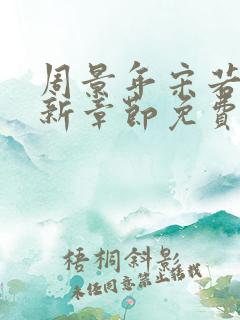 周景年宋若
新章節免費
梧桐斜影
未经同意禁止转载